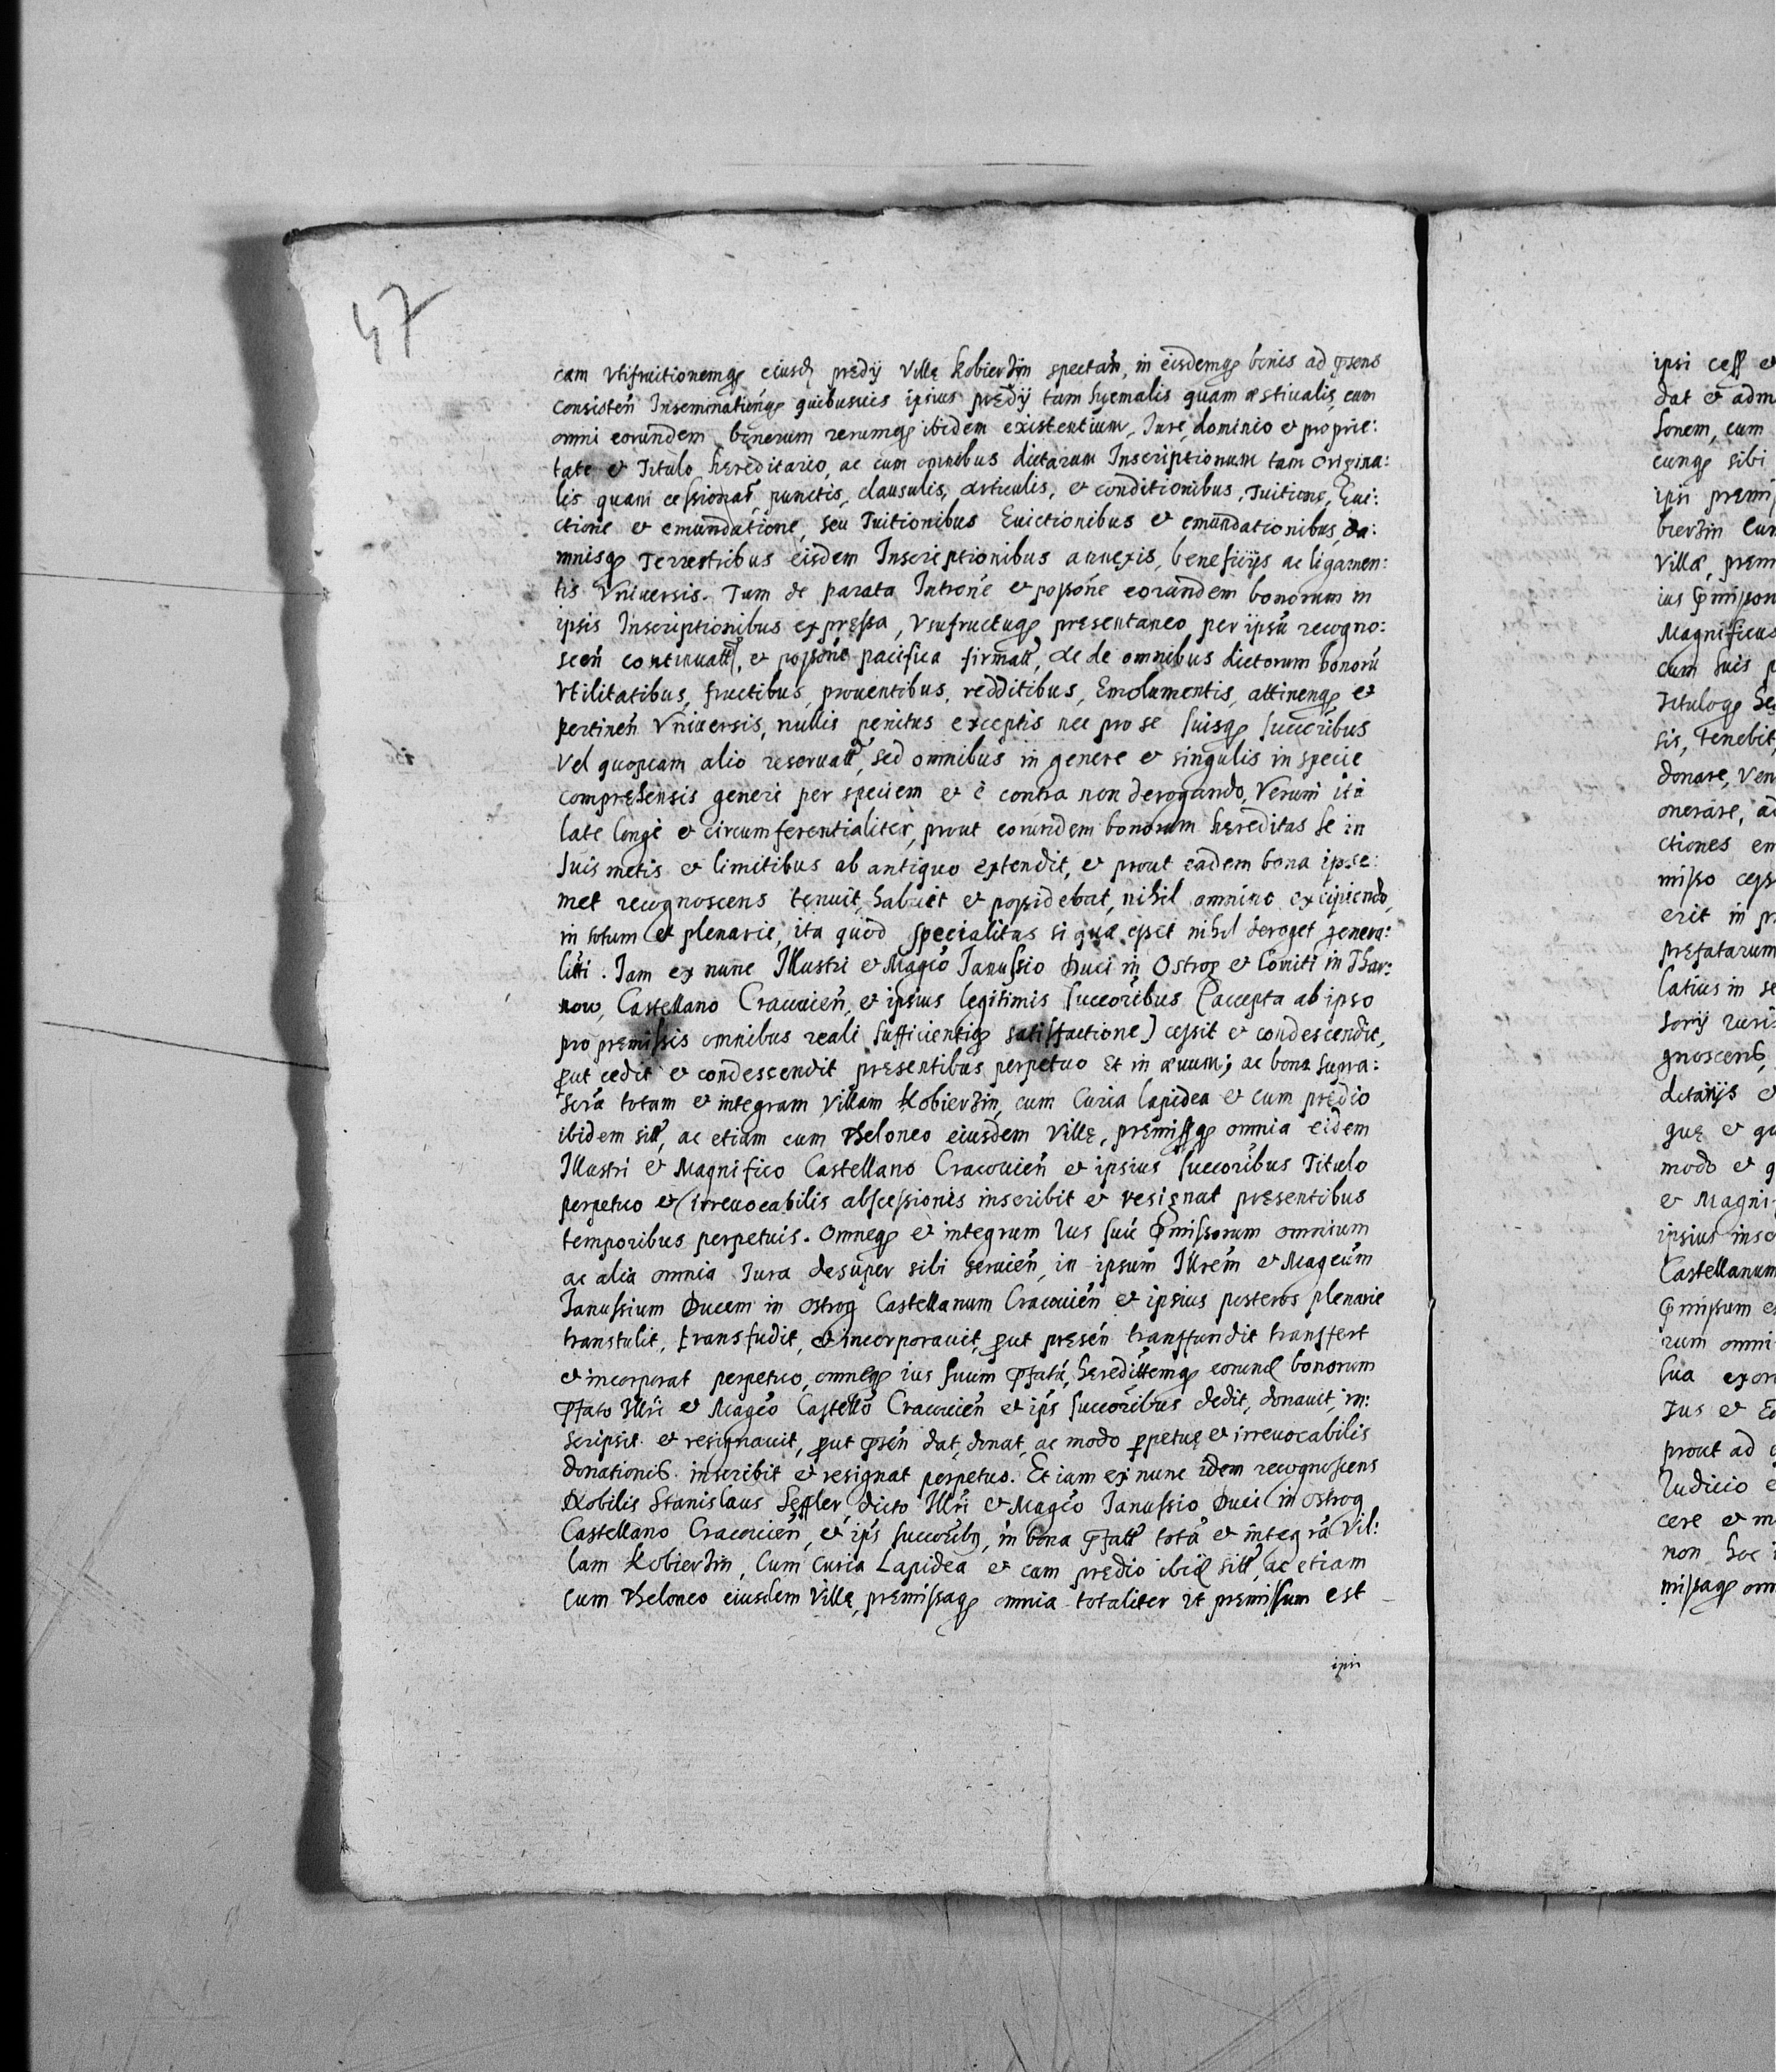 47
cam Vtifruitionemq₃ eiusd prędij Villę Kobierzin spectań, in eisdemq₃ bonis ad pñsens
consisteń Inseminationq₃ quibusuis ipsius prędij tam hyemalis quam æstiualis, cum
omni eorundem bonorum rerumq₃ ibidem existentium, Iure, dominio et proprie:
tate et Titulo hęreditario, ac cum omnibus dictarum Inscriptionum tam Origina:
lis quam cessionar, punctis, clausulis, articulis, et conditionibus, Tuitione, Eui:
ctione et emundatione, seu Tuitionibus Euictionibus et emundationibus, da:
mnisq₃ Terrestribus eisdem Inscriptionibus annexis, beneficijs ac ligamen:
tis Vniuersis. Tum de parata Introńe et possońe eorundem bonorum in
ipsis Inscriptionibus expręssa, Vsufructuq₃ pręsentaneo per ipsū recogno:
sceń continuatt, et possońe pacifica firmatt, Ac de omnibus dictorum bonorū
Vtilitatibus, fructibus, prouentibus, redditibus, Emolumentis, attinenq₃ et
pertineń Vniuersis, nullis penitus exceptis nec pro se suisq₃ succoribus
Vel quopiam alio reseruatt, sed omnibus in genere et singulis in specie
comprehensis generi per speciem et è contra non derogando, Verum ita
late longè et circumferentialiter, prout eorundem bonorum hęreditas se in
suis metis et limitibus ab antiquo extendit, et prout eadem bona ipse:
met recognoscens tenuit, habuit et possidebat, nihil omnino excipiendo,
in totum et plenarie, ita quod specialitas si quæ esset nihil deroget genera:
litti. Iam ex nunc Illustri et Magco Ianussio Duci in Ostrog et Comiti in Thar:
now, Castellano Cracouień, et ipsius legitimis succoribus (accepta ab ipso
pro pręmissis omnibus reali sufficientiq₃ satisfactione) cessit et condescendit,
put cedit et condescendit pręsentibus perpetuo Et in æuum; ac bona supra:
scra totam et integram Villam Kobierzin, cum Curia lapidea et cum prędio
ibidem sitt, ac etiam cum Theloneo eiusdem Villę, pręmissq₃ omnia eidem
Illustri et Magnifico Castellano Cracouień et ipsius succoribus Titulo
perpetuo et irreuocabilis abscessionis inscribit et resignat pręsentibus
temporibus perpetuis. Omneq₃ et integrum Ius suū pmissorum omnium
ac alia omnia Iura desuper sibi seruień, in ipsum Illrem et Magcum
Ianussium Ducem in Ostrog Castellanum Cracouień et ipsius posteros plenarie
transtulit, transfudit, et incorporauit, put pręseń transfundit transfert
et incorporat perpetuo, omneq₃ ius suum pfatū, hęredittemq₃ eorund bonorum
pfato Illri et Magco Castello Cracouień et ips succoribus dedit, donauit, in:
scripsit et resignauit, put pseń dat, donat, ac modo ppetuę et irreuocabilis
donationis inscribit et resignat perpetuo. Et iam ex nunc idem recognoscens
Nobilis Stanislaus Seffler, dicto Illri et Magco Ianussio Duci in Ostrog
Castellano Cracouień, et ips succoribꝰ, in bona pfatt totā et integrā Vil:
lam Kobierzin, Cum Curia Lapidea et cum prędio ibid sitt, ac etiam
cum Theloneo eiusdem Villę, pręmissaq₃ omnia totaliter ut pręmissum est
ipsi
ipsi cess et
dat et adm
sonem, cum
cunq₃ sibi
ipsi pręmis
bierzin Cum
Villæ, pręm
ius pmisson
Magnificus
cum suis p
Tituloq₃ hę
sis, Tenebit,
donare, Ven
onerare, ad
ctiones em
misso cess
erit in p
pręfatarum
latius in se
sorij iuris
gnoscens,
detarijs et
quę et qu
modo et q
et Magni:
ipsius insc
Castellanum
pmissum et
rum omni
sua exon
Ius et E
prout ad
Iudicio e
cere et m
non hoc i
missaq₃ om